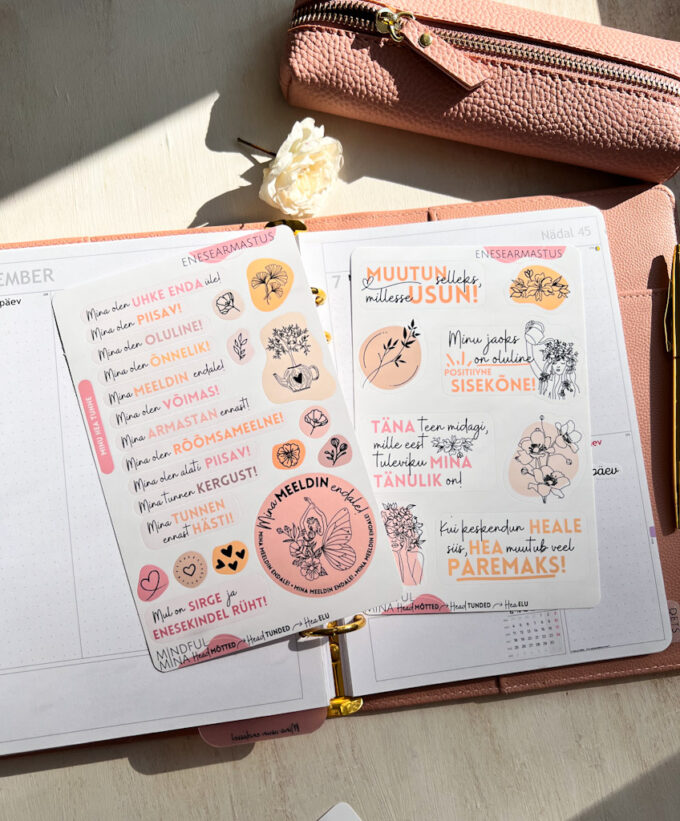 EMBER
päev
Nädal 45
7
ENESEARMASTUS
Mina olen UHKE ENDA üle!
Mina olen PIISAV!
Mina olen OLULINE!
Mina olen ÕNNELIK!
Mina MEELDIN endale!
Mina olen VÕIMAS!
Mina ARMASTAN ennast!
Mina olen RÕÕMSAMEELNE!
Mina olen alati PIISAV!
Mina tunnen KERGUST!
Mina TUNNEN
ennast HÄSTI!
MINU HEA TUNNE
Mina MEELDIN endale!
MINA MEELDIN ENDALE! • MINA MEELDIN ENDALE!
Mul on SIRGE ja
ENESEKINDEL RÜHT!
MINDFUL
MINA Head MÕTTED Head TUNDED Hea ELU
ENESEARMASTUS
MUUTUN selleks,
millesse USUN!
Minu jaoks
on oluline
POSITIIVNE
SISEKÕNE!
TÄNA teen midagi,
mille eest
tuleviku MINA
TÄNULIK on!
Kui keskendun HEALE
siis HEA muutub veel
PAREMAKS!
MINA Head MÕTTED Head TUNDED Hea ELU
päev
päev